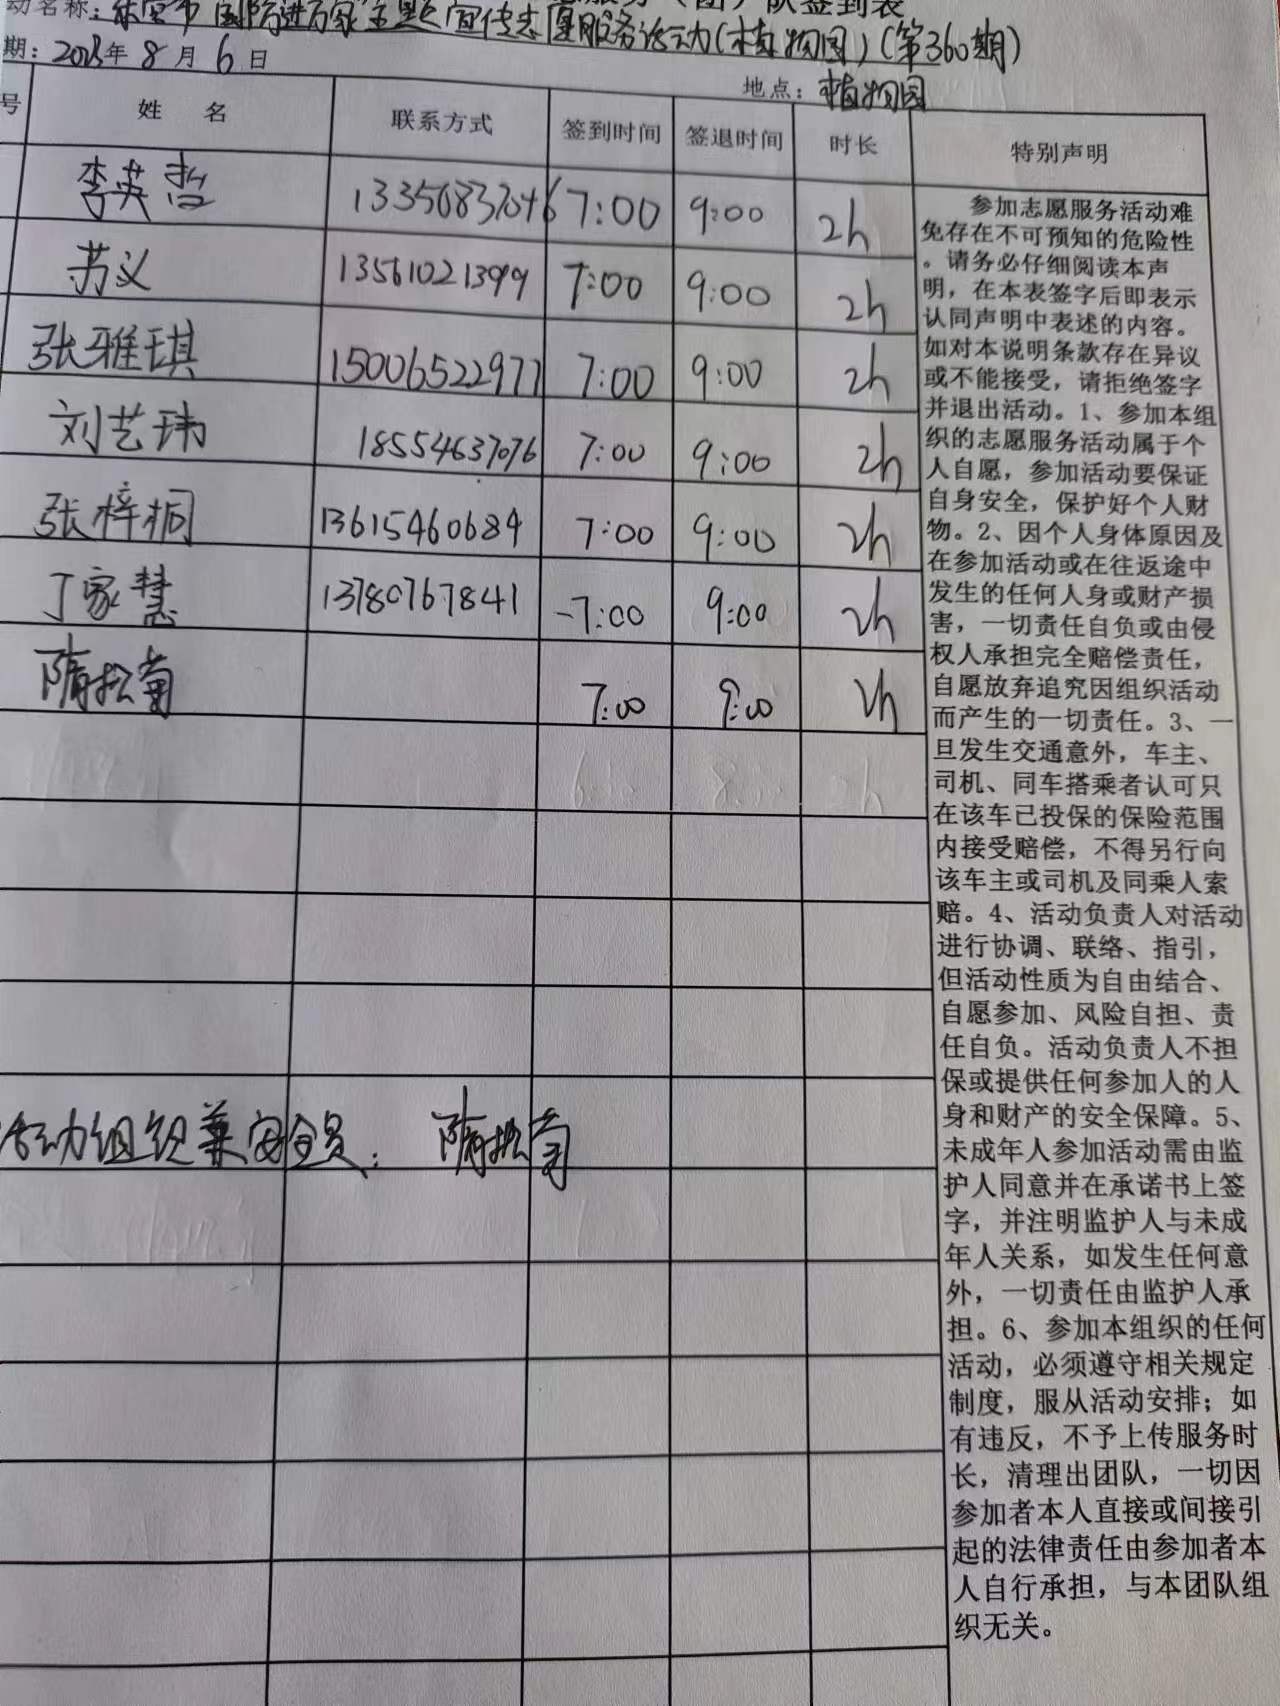 队签到表
动名称：东营市"国防进万家"主题宣传志愿服务活动(植物园)(第360期)
期：2023年8月6日
地点：植物园
号 姓名 联系方式 签到时间 签退时间 时长 特别声明
李英哲 13356837046 7:00 9:00 2h
苏义 13561021399 7:00 9:00 2h
张雅琪 15006522977 7:00 9:00 2h
刘艺玮 18554637076 7:00 9:00 2h
张梓桐 13615460684 7:00 9:00 2h
丁家慧 13780767841 7:00 9:00 2h
隋松菊 7:00 9:00 2h
活动组织兼安全员：隋松菊
参加志愿服务活动难
免存在不可预知的危险性
。请务必仔细阅读本声
明，在本表签字后即表示
认同声明中表述的内容。
如对本说明条款存在异议
或不能接受，请拒绝签字
并退出活动。1、参加本组
织的志愿服务活动属于个
人自愿，参加活动要保证
自身安全，保护好个人财
物。2、因个人身体原因及
在参加活动或在往返途中
发生的任何人身或财产损
害，一切责任自负或由侵
权人承担完全赔偿责任，
自愿放弃追究因组织活动
而产生的一切责任。3、一
旦发生交通意外，车主、
司机、同车搭乘者认可只
在该车已投保的保险范围
内接受赔偿，不得另行向
该车主或司机及同乘人索
赔。4、活动负责人对活动
进行协调、联络、指引，
但活动性质为自由结合、
自愿参加、风险自担、责
任自负。活动负责人不担
保或提供任何参加人的人
身和财产的安全保障。5、
未成年人参加活动需由监
护人同意并在承诺书上签
字，并注明监护人与未成
年人关系，如发生任何意
外，一切责任由监护人承
担。6、参加本组织的任何
活动，必须遵守相关规定
制度，服从活动安排；如
有违反，不予上传服务时
长，清理出团队，一切因
参加者本人直接或间接引
起的法律责任由参加者本
人自行承担，与本团队组
织无关。